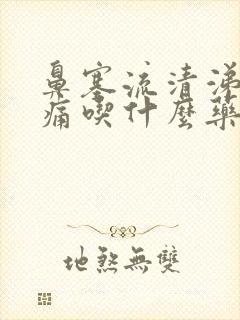 鼻塞流清涕
痛喫什麼藥
地煞無雙